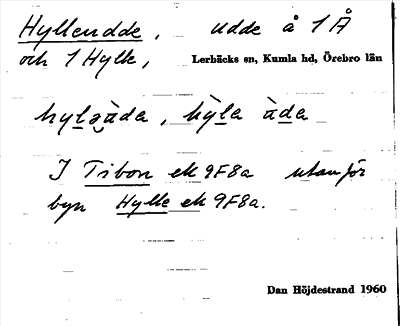 Hyllendde, udde å 1 Å
och 1 Hylle, Lerbäcks sn, Kumla hd, Örebro län
I Tibon ek 9F8a utanför
byn Hylle ek 9F8a.
Dan Höjdestrand 1960